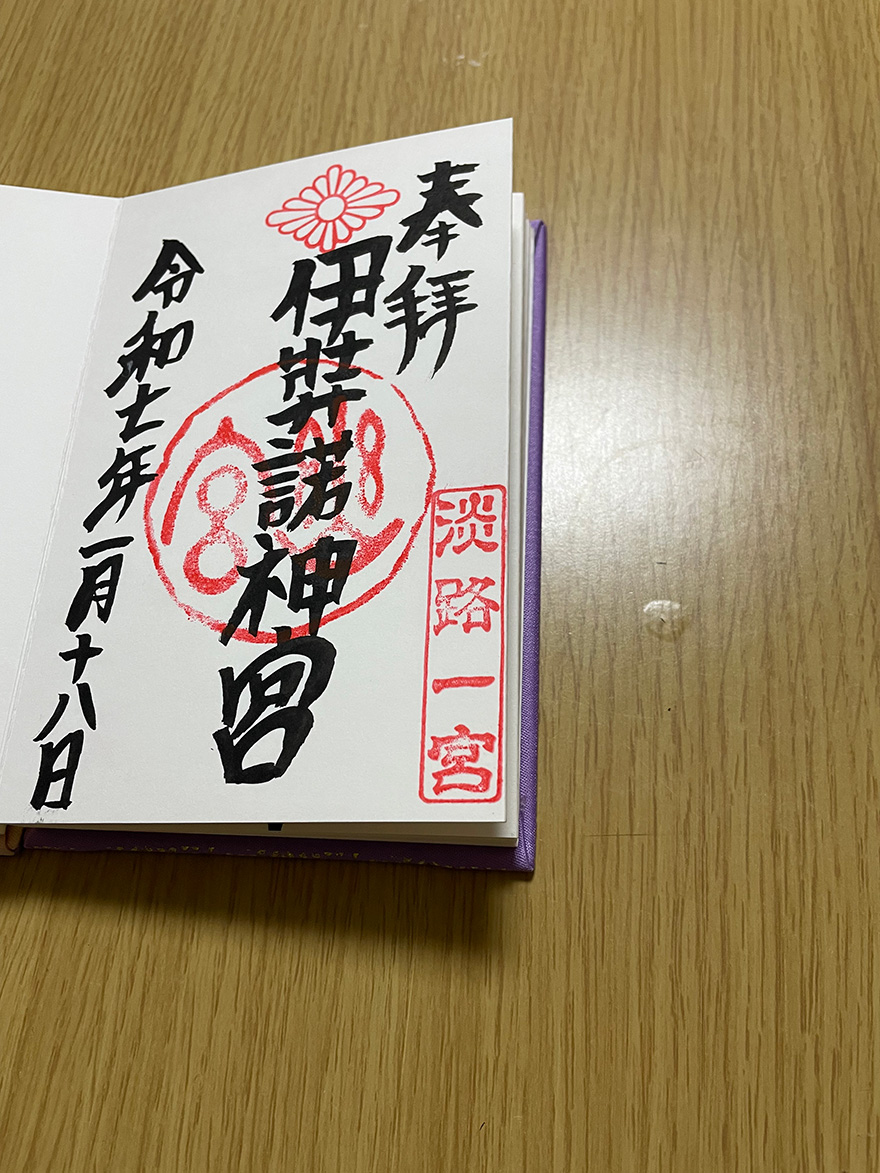 奉拝
淡路一宮
伊弉諾神宮
令和七年一月十八日